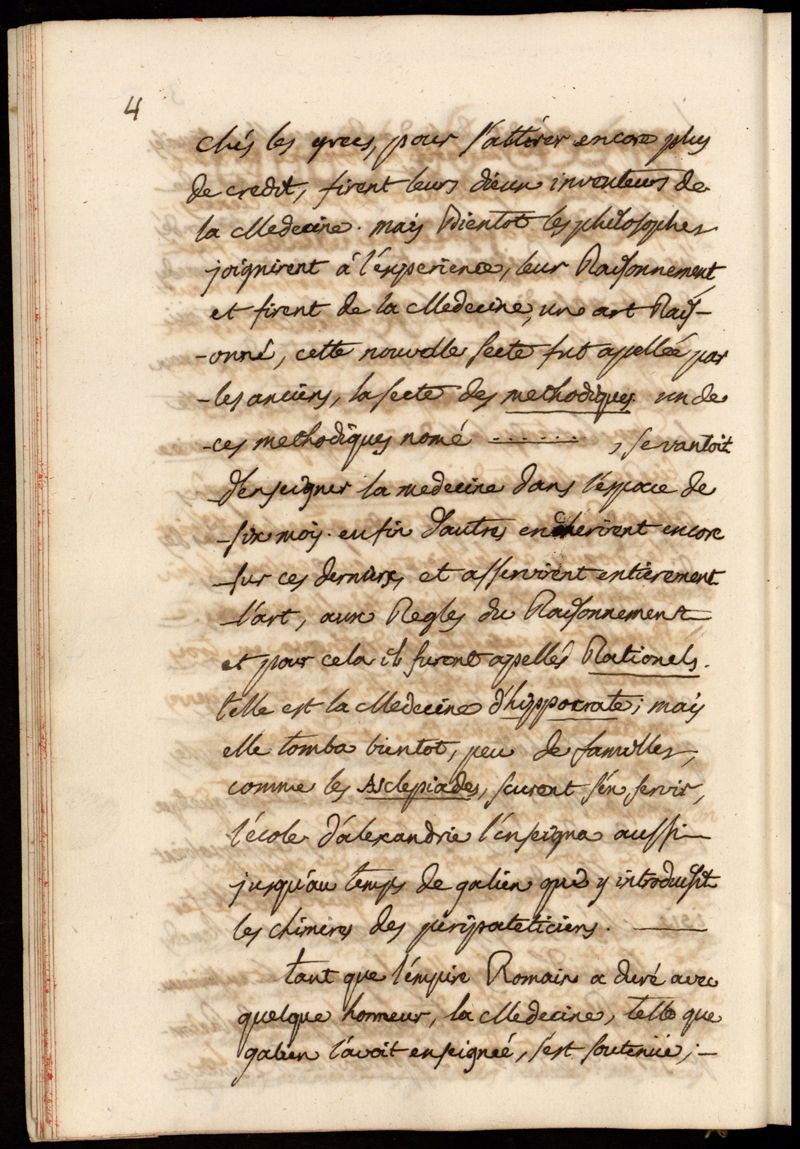 4
chés les grecs, pour s'attirer encore plus
de credit, firent leurs dieux inventeurs de
la Medecine. mais Bientot les philosophes
joignirent à l'éxperience, leur Raisonnement
et firent de la Medecine, un art Rais-
-onné, cette nouvelle secte fut apellée par
-les anciens, la secte des methodiques. un de
-ces methodiques nomé ......., se vantoit
d'enseigner la medecine dans l'éspace de
-six mois. enfin d'autres encherirent encore
-sur ces derniers et asservirent entierement
-l'art, aux Regles du Raisonnement
et pour cela ils furent apellés Rationels.
telle est la Medecine d'hyppocrate; mais
elle tomba bientot, peu de familles,
comme les Asclepiades, scurent s'én servir,
l'école d'alexandrie l'énseigna aussi
jusqu'au temps de galien qui y introduisit
les chimeres des péripateticiens.
tant que l'émpire Romain a duré avec
quelque honneur, la Medecine, telle que
galien l'avoit enseigneé, s'ést soutenüe;-